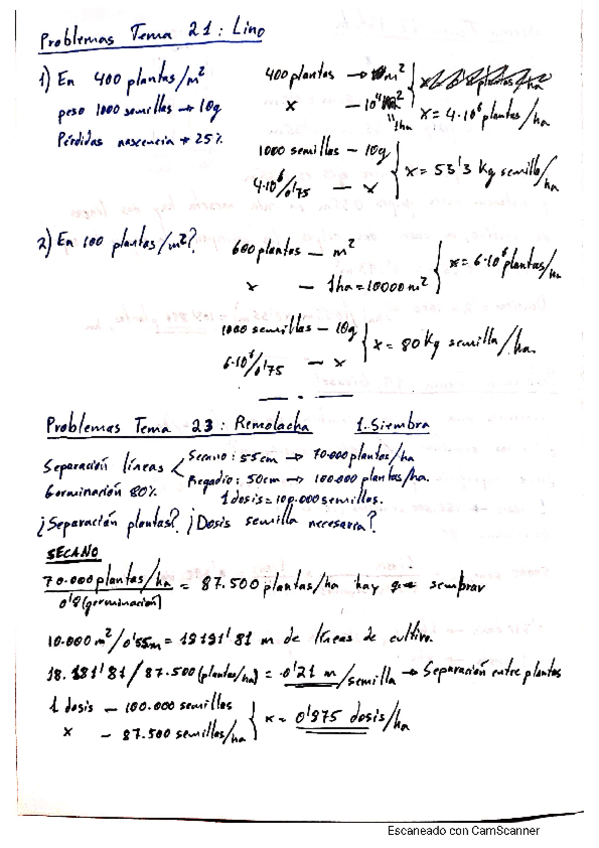 Problemas Tema 21: Lino
1) En 400 plantas/m²
peso 1000 semillas → 10g
Pérdidas nascencia → 25%
400 plantas → m²
x — 10⁴ m²
1ha
x = 4·10⁶ plantas/ha
1000 semillas — 10g
4·10⁶/0'75 — x
x = 53'3 Kg semilla/ha
2) En 100 plantas/m²?
600 plantas — m²
x — 1ha = 10000 m²
x = 6·10⁶ plantas/ha
1000 semillas — 10g
6·10⁶/0'75 — x
x = 80 Kg semilla/ha.
Problemas Tema 23: Remolacha 1. Siembra
Separación líneas
Secano: 55cm → 70.000 plantas/ha
Regadío: 50cm → 100.000 plantas/ha.
Germinación 80%
1 dosis = 100.000 semillas.
¿Separación plantas? ¿Dosis semilla necesaria?
SECANO
70.000 plantas/ha / 0'8 (germinación) = 87.500 plantas/ha hay que sembrar
10.000 m²/0'55m = 18181'81 m de líneas de cultivo.
18.181'81 / 87.500 (plantas/ha) = 0'21 m/semilla → Separación entre plantas
1 dosis — 100.000 semillas
x — 87.500 semillas/ha
x = 0'875 dosis/ha
Escaneado con CamScanner